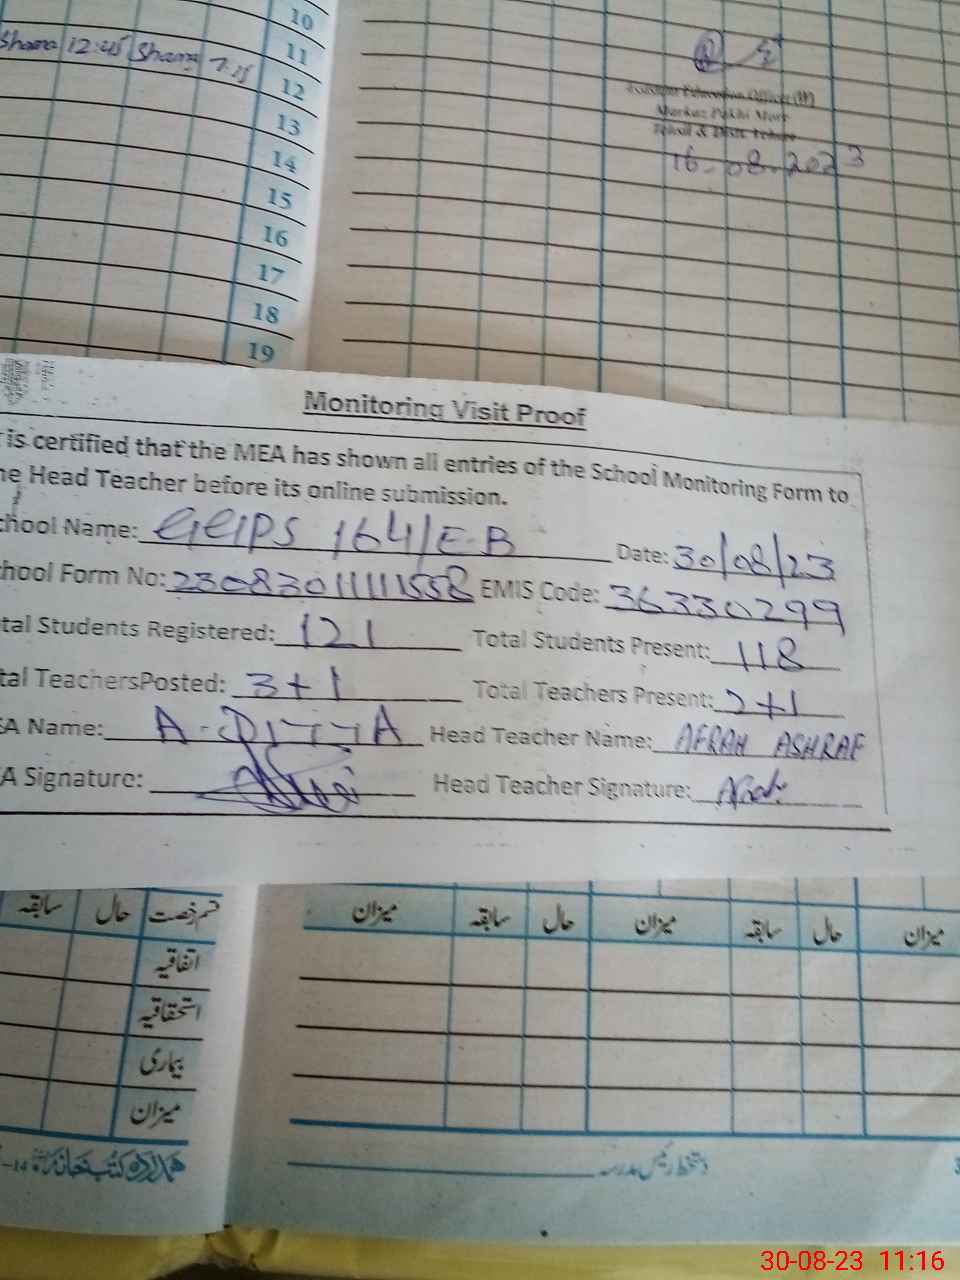 10
Shama 12:45 Shama 7:15 11
12
13
14
15
16
17
18
19
Education Officer (W)
Markaz Pakhi Mor
Tehsil & Distt.
16-08-2023
Monitoring Visit Proof
is certified that the MEA has shown all entries of the School Monitoring Form to
he Head Teacher before its online submission.
chool Name: GGPS 164/E-B Date: 30/08/23
hool Form No: 2308301111558 EMIS Code: 36330299
tal Students Registered: 121 Total Students Present: 118
tal TeachersPosted: 3+1 Total Teachers Present: 2+1
EA Name: A-DITTA Head Teacher Name: AFRAH ASHRAF
A Signature: Head Teacher Signature:
قسم رخصت حال سابقہ
اتفاقیہ
استحقاقیہ
بیماری
میزان
میزان حال سابقہ میزان حال سابقہ میزان
دستخط رئیس مدرسہ
30-08-23 11:16